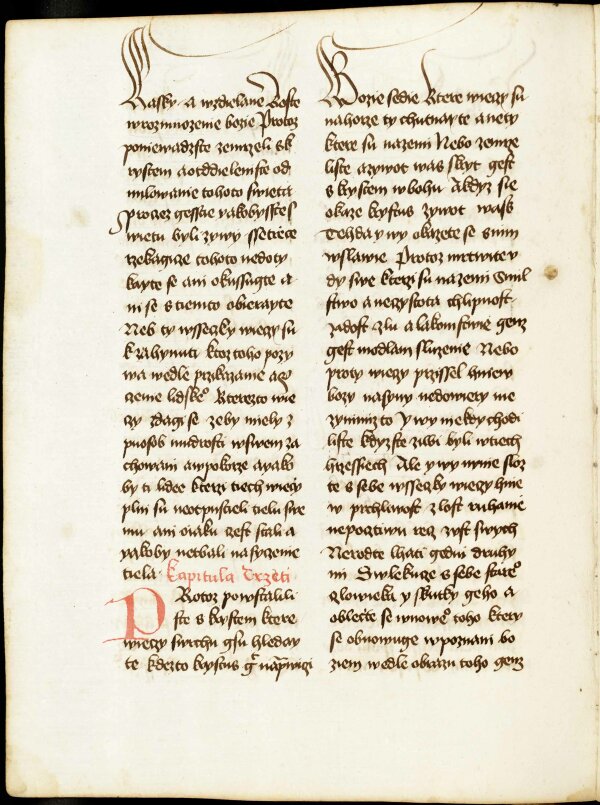 kasky a wzdielane Roste
w rozmnozenie bozie Protoz
poniewadzste zemrzeli s k
rystem a otddieleniste od
milowanie tohoto swieta
Procz gesstie yakobysste s
wietu byli zywy ssetrzete
rzekagize tohoto nedoty
kayte se ani okussugte a
ni se s tiemto obierayte
Neb ty wsseczky wieczy su
k zahynuti ktoz toho pozy
wa wedle przikazanie a
czenie lidske Kterezto wie
czy zdagi se zeby miely z
puosob mudrosti w swem za
chowani a w pokorze a yako
by ti lidee kterzi tiech wieczy
plni su neotpustieli tielu swe
mu ani oiaku gest stali a
yakoby netbali nasyczenie
tiela Kapitula Trzeti
Protoz powstalili
ste s krystem ktere
wieczy swrchu gsu hleday
te kdezto krystus gt na prawiczi
Bozie sedie Ktere wieczy su
nahorze ty chutnayte a nety
ktere su nazemi Nebo zemrze
liste a zywot was skryt gest
s krystem w bohu A kdyz sie
okaze krystus zywot wass
Tehda y wy okazete se s nim
w slawie Protoz mrtwite v
dy swe kterzi su nazemi Smil
stwo a neczystota chlipnost
zadost zlu a lakomstwie genz
gest modlam sluzenie Nebo
proty wieczy przissel hniew
bozy na syny nedowiery ne
zyninizto Y wy niekdy chodi
liste kdyzste ziwi byli w tiech
hrziessiech Ale y wy nynie sloz
te s sebe wsseczky wieczy hnie
w prchliwost zlost ruhanie
nepoctiwu rzecz z vst swych
Nerodte lhati gedni druhy
m Swlekuge s sebe stareo
czlowieka y skutky geho a
oblecte se w noweo toho ktery
se obnowuge w poznani bo
ziem wedle obrazu toho genz